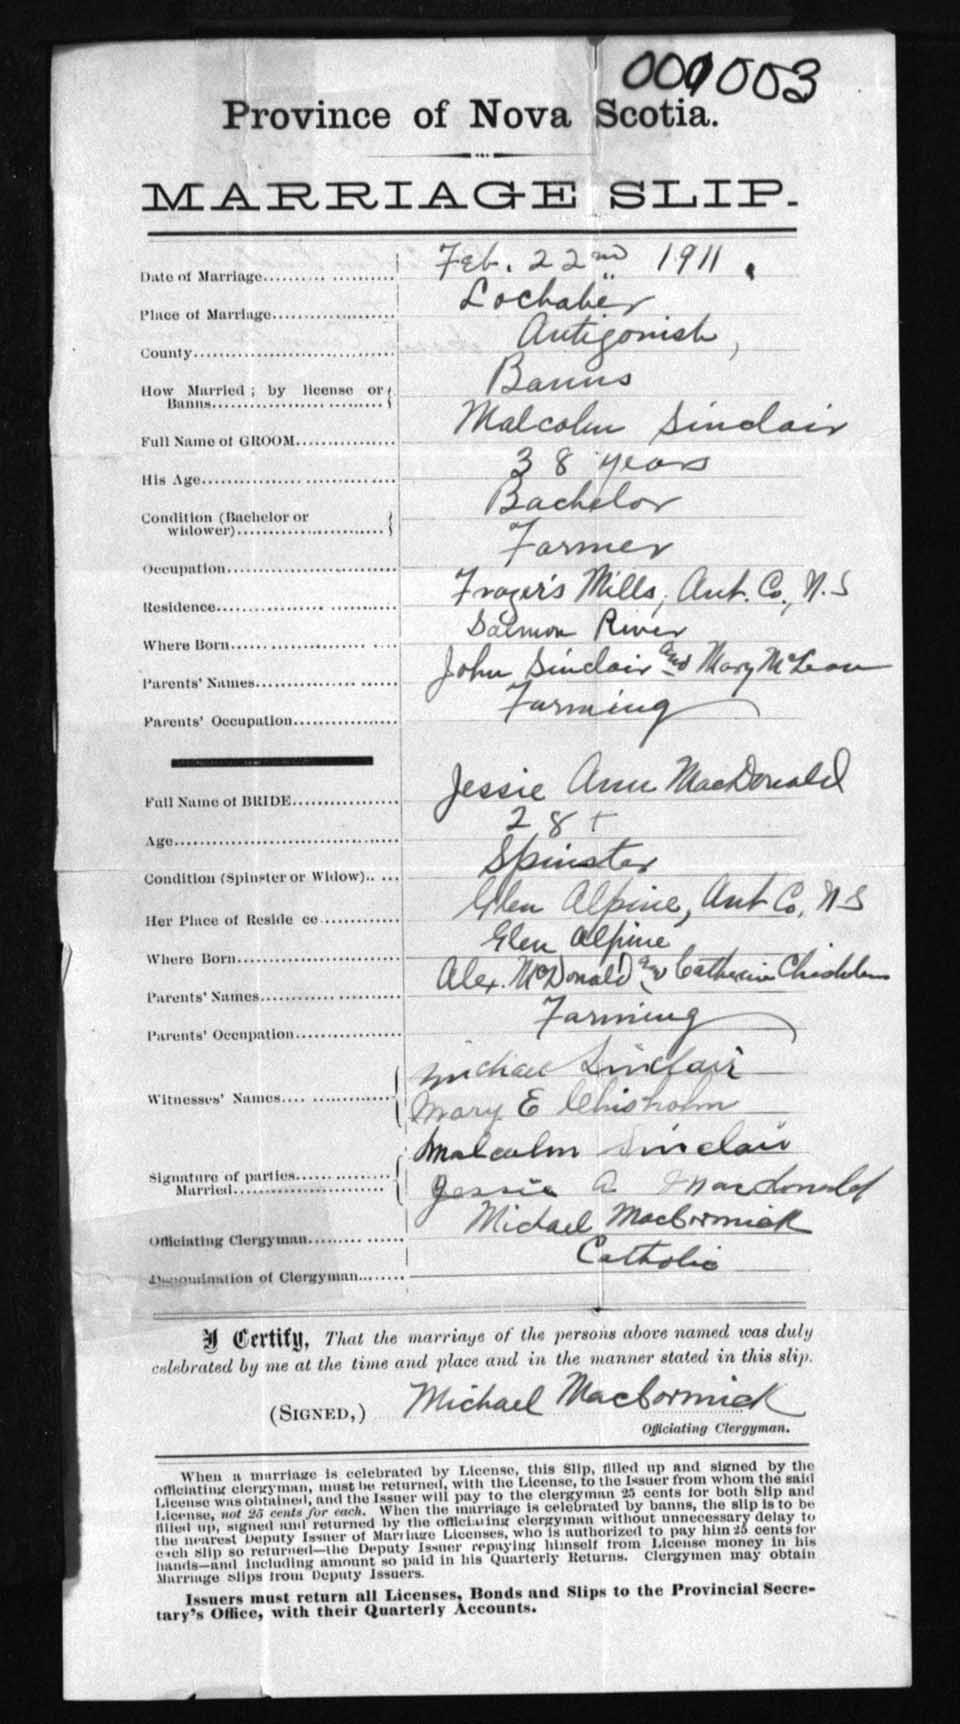 001003
Province of Nova Scotia.
MARRIAGE SLIP.
Date of Marriage.................... Feb. 22nd 1911.
Place of Marriage.................... Lochaber
County.................... Antigonish,
How Married; by license or Banns.................... Banns
Full Name of GROOM............... Malcolm Sinclair
His Age.................... 38 years
Condition (Bachelor or widower).................... Bachelor
Occupation.................... Farmer
Residence.................... Frazer's Mills, Ant. Co., N.S
Where Born.................... Salmon River
Parents' Names.................... John Sinclair and Mary McLean
Parents' Occupation............... Farming
Full Name of BRIDE............... Jessie Ann MacDonald
Age.................... 28 +
Condition (Spinster or Widow)..... Spinster
Her Place of Reside ce............. Glen Alpine, Ant Co, N S
Where Born.................... Glen Alpine
Parents' Names.................... Alex. McDonald and Catherine Chisholm
Parents' Occupation............... Farming
Witnesses' Names.................... Michael Sinclair
Mary E Chisholm
Signature of parties Married.................... Malcolm Sinclair
Jessie A Macdonald
Officiating Clergyman............... Michael MacCormick
Denomination of Clergyman........ Catholic
I Certify, That the marriage of the persons above named was duly
celebrated by me at the time and place and in the manner stated in this slip.
(SIGNED,) Michael MacCormick
Officiating Clergyman.
When a marriage is celebrated by License, this Slip, filled up and signed by the
officiating clergyman, must be returned, with the License, to the Issuer from whom the said
License was obtained, and the Issuer will pay to the clergyman 25 cents for both Slip and
License, not 25 cents for each. When the marriage is celebrated by banns, the slip is to be
filled up, signed and returned by the officiating clergyman without unnecessary delay to
the nearest Deputy Issuer of Marriage Licenses, who is authorized to pay him 25 cents for
each slip so returned—the Deputy Issuer repaying himself from License money in his
hands—and including amount so paid in his Quarterly Returns. Clergymen may obtain
Marriage Slips from Deputy Issuers.
Issuers must return all Licenses, Bonds and Slips to the Provincial Secre-
tary's Office, with their Quarterly Accounts.